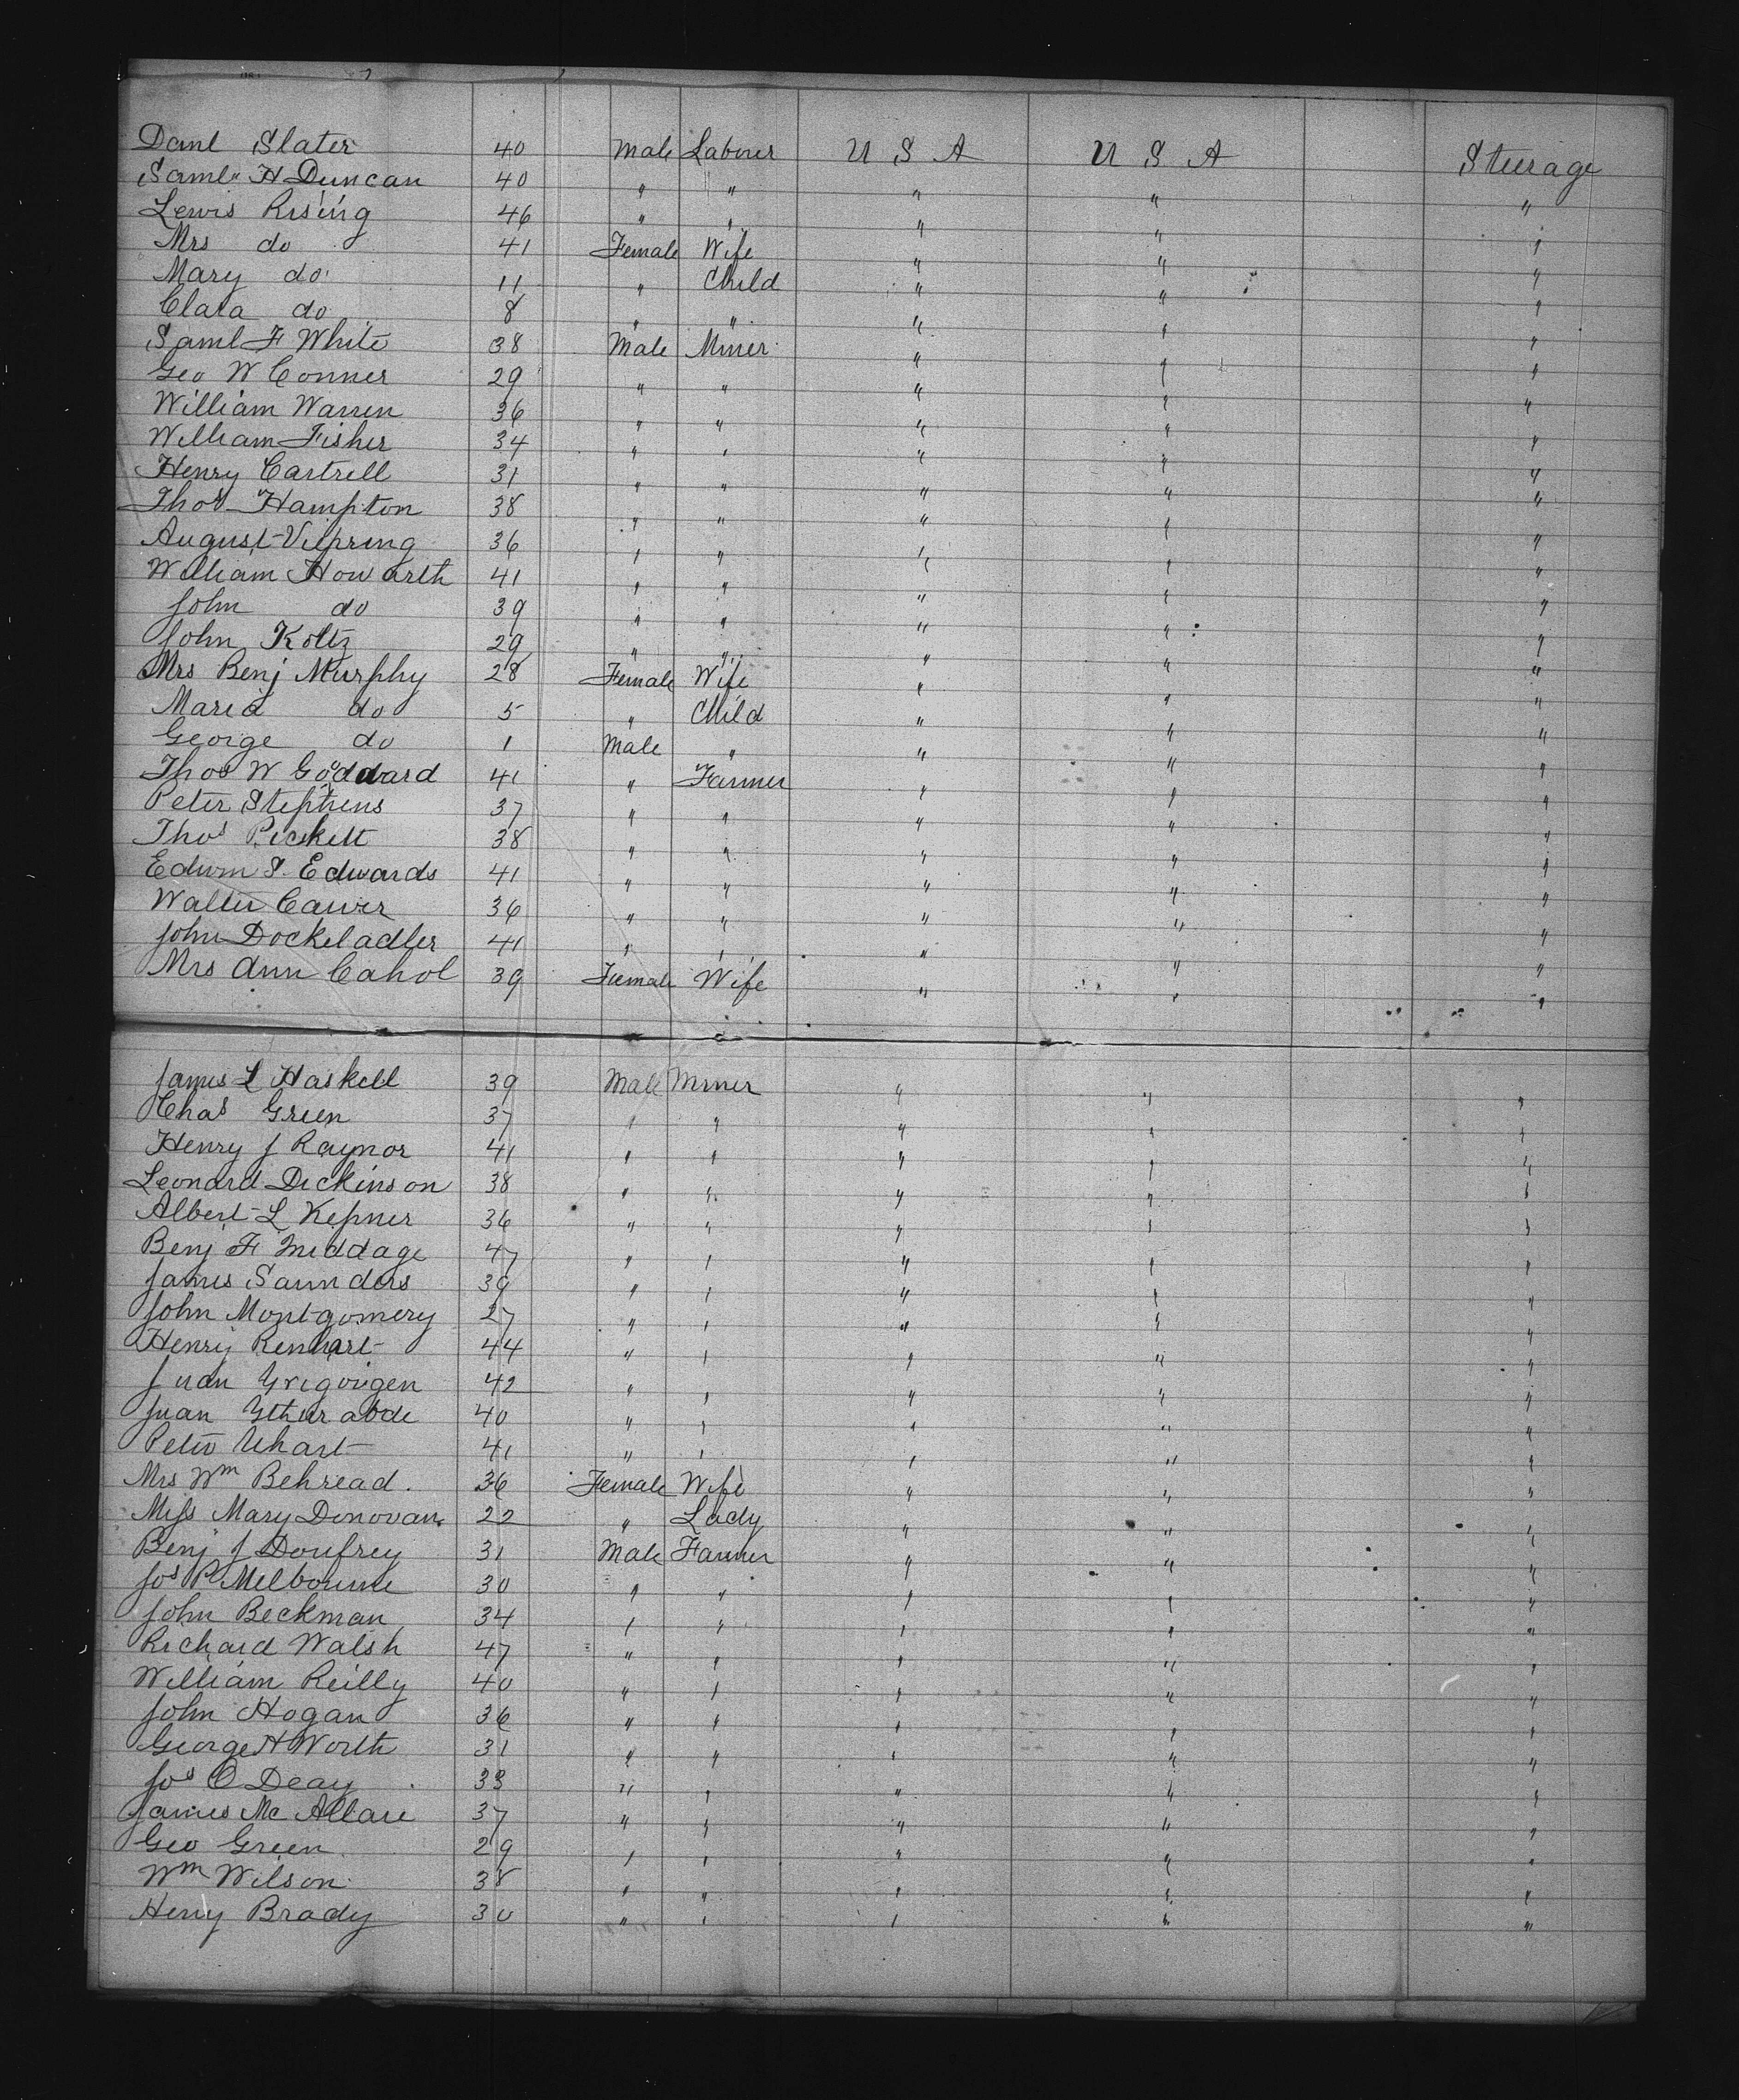 Danl Slater 40 Male Labourer U S A U S A Steerage
Saml H Duncan 40 " " " " "
Lewis Rising 46 " " " " "
Mrs do 41 Female Wife " " "
Mary do 11 " Child " " "
Clara do 8 " " " " "
Saml F White 38 Male Miner " " "
Geo W Conner 29 " " " " "
William Warren 36 " " " " "
William Fisher 34 " " " " "
Henry Cartrell 31 " " " " "
Thos Hampton 38 " " " " "
August 36 " " " " "
William Howarth 41 " " " " "
John do 39 " " " " "
John Koltz 29 " " " " "
Mrs Benj Murphy 28 Female Wife " " "
Maria do 5 " Child " " "
George do 1 Male " " " "
Thos W Goddard 41 " Farmer " " "
Peter Stephens 37 " " " " "
Thos Pickett 38 " " " " "
Edwin S. Edwards 41 " " " " "
Walter Carver 36 " " " " "
John Dockeladler 41 " " " " "
Mrs Ann Cahol 39 Female Wife " " "
James L Haskell 39 Male Miner " " "
Chas Green 37 " " " " "
Henry J Raynor 41 " " " " "
Leonard Dickinson 38 " " " " "
Albert L Kepner 36 " " " " "
Benj F Middage 47 " " " " "
James Saunders 39 " " " " "
John Montgomery 27 " " " " "
Henry Renhart 44 " " " " "
Juan 42 " " " " "
Juan 40 " " " " "
Peter Uhart 41 " " " " "
Mrs Wm Behread. 36 Female Wife " " "
Miss Mary Donovan. 22 " Lady " " "
Benj J Doufrey 31 Male Farmer " " "
Jos P Melbourne 30 " " " " "
John Beckman 34 " " " " "
Richard Walsh 47 " " " " "
William Reilly 40 " " " " "
John Hogan 36 " " " " "
George H Worth 31 " " " " "
Jos O Deay 33 " " " " "
James Mc Allare 37 " " " " "
Geo Green 29 " " " " "
Wm Wilson 38 " " " " "
Henry Brady 30 " " " " "